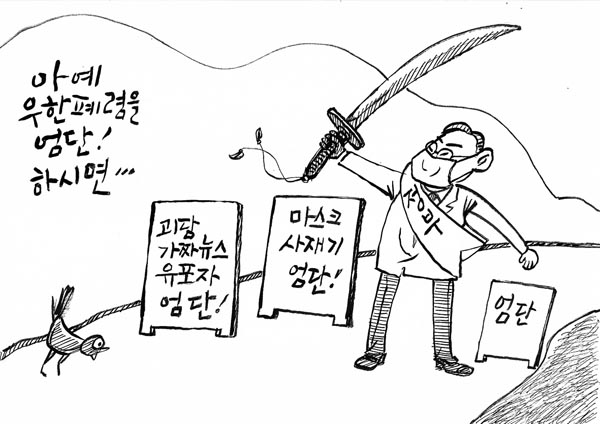 아예
우한폐렴을
엄단!
하시면...
괴담
가짜뉴스
유포자
엄단!
마스크
사재기
엄단!
엄단